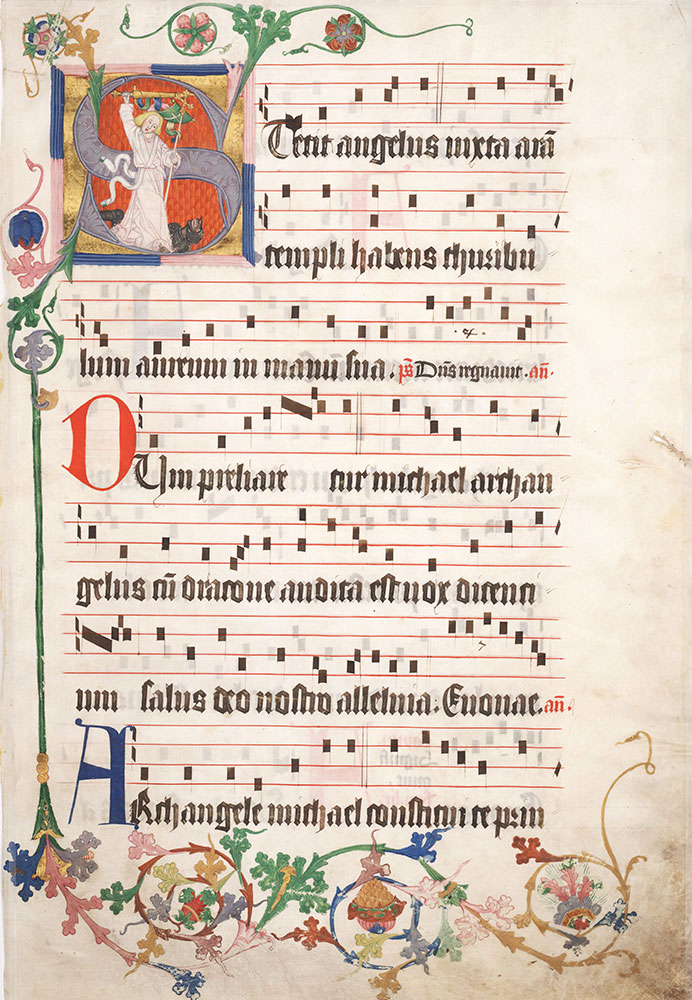 Stetit angelus iuxta arā
templi habens thuribu
lum aureum in manu sua. ps Dn̄s regnauit. an̄.
Dum preliare tur michael archan
gelus cū dracone audita est uox dicenti
um salus deo nostro alleluia. Euouae. an̄.
Archangele michael constitui te prin